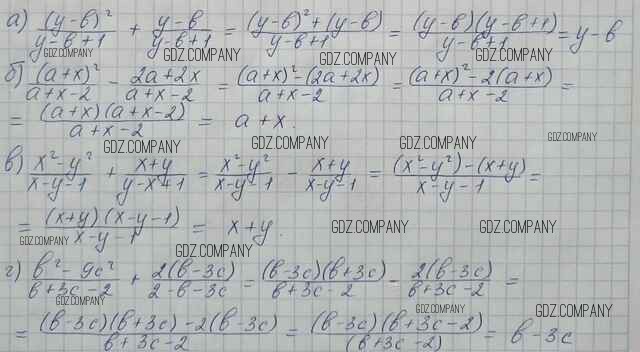 а) (y-в)²/(y-в+1) + (y-в)/(y-в+1) = ((y-в)²+(y-в))/(y-в+1) = ((y-в)(y-в+1))/(y-в+1) = y-в
GDZ.COMPANY GDZ.COMPANY GDZ.COMPANY GDZ.COMPANY
б) (a+x)²/(a+x-2) - (2a+2x)/(a+x-2) = ((a+x)²-(2a+2x))/(a+x-2) = ((a+x)²-2(a+x))/(a+x-2) =
= ((a+x)(a+x-2))/(a+x-2) = a+x.
GDZ.COMPANY GDZ.COMPANY GDZ.COMPANY GDZ.COMPANY
в) (x²-y²)/(x-y-1) + (x+y)/(y-x+1) = (x²-y²)/(x-y-1) - (x+y)/(x-y-1) = ((x²-y²)-(x+y))/(x-y-1) =
= ((x+y)(x-y-1))/(x-y-1) = x+y.
GDZ.COMPANY GDZ.COMPANY GDZ.COMPANY GDZ.COMPANY
г) (в²-9c²)/(в+3c-2) + 2(в-3c)/(2-в-3c) = ((в-3c)(в+3c))/(в+3c-2) - 2(в-3c)/(в+3c-2) =
GDZ.COMPANY GDZ.COMPANY GDZ.COMPANY
= ((в-3c)(в+3c)-2(в-3c))/(в+3c-2) = ((в-3c)(в+3c-2))/(в+3c-2) = в-3c